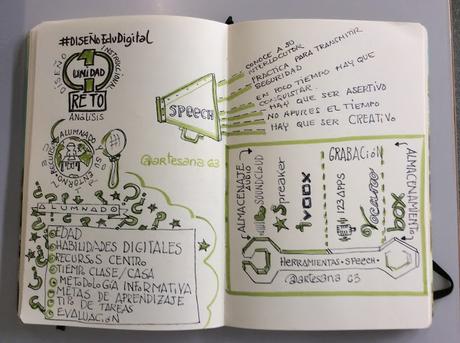 #DISEÑOEduDigital
DISEÑO
INSTRUCCIONAL
1
UNIDAD
RETO
ANÁLISIS
ALUMNADO
RECURSOS
ENTORNO
@artesana63
ALUMNADO
EDAD
HABILIDADES DIGITALES
RECURSOS CENTRO
TIEMPO CLASE/CASA
METODOLOGÍA INFORMATIVA
METAS DE APRENDIZAJE
TIPO DE TAREAS
EVALUACIÓN
SPEECH
CONOCE A SU
INTERLOCUTOR
PRACTICA PARA TRANSMITIR
SEGURIDAD
EN POCO TIEMPO HAY QUE
CONQUISTAR
HAY QUE SER ASERTIVO
NO APURES EL TIEMPO
HAY QUE SER CREATIVO
ALMACENAJE
AUDIO
SOUNDCLOUD
Spreaker
ivoox
GRABACIÓN
123APPS
Vocaroo
ALMACENAMIENTO
box
HERRAMIENTAS-SPEECH-
@artesana63